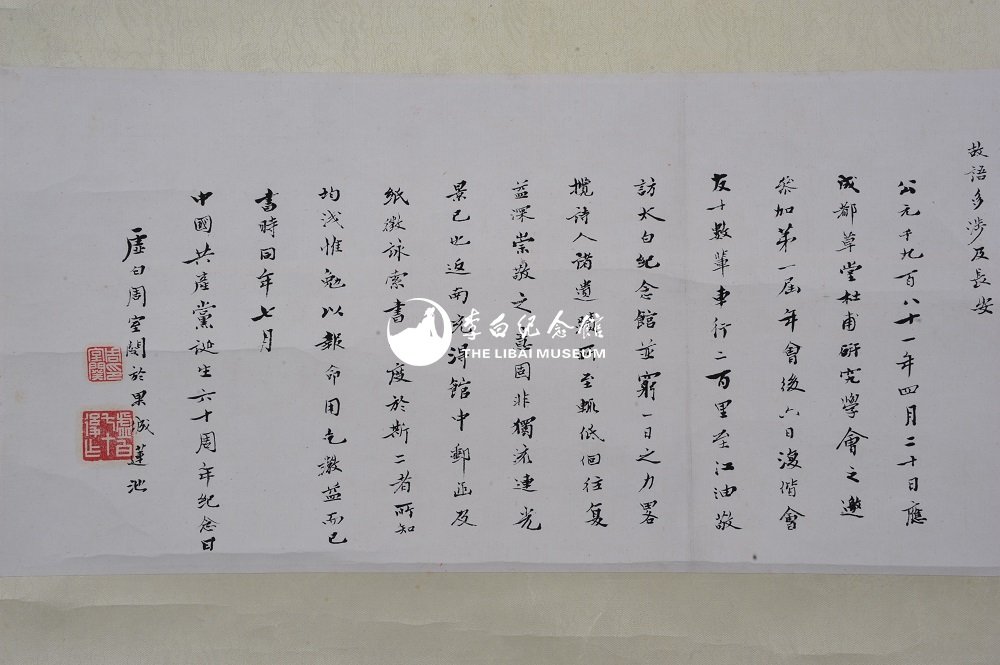 故語多涉及長安
公元千九百八十一年四月二十日應
成都草堂杜甫研究學會之邀
參加第一屆年會後六日復偕會
友十數輩車行二百里至江油敬
訪太白紀念館並窮一日之力畧
攬詩人諸遺 所至輒低佪往复
益深崇敬之 固非獨流連光
景已也返南充得館中郵函及
紙徵詠索書 度於斯二者所知
均淺惟勉以報命用乞教益而已
書時同年七月
中國共產黨誕生六十周年紀念日
虛白周室閣於果城蓮池
李白纪念馆
THE LIBAI MUSEUM